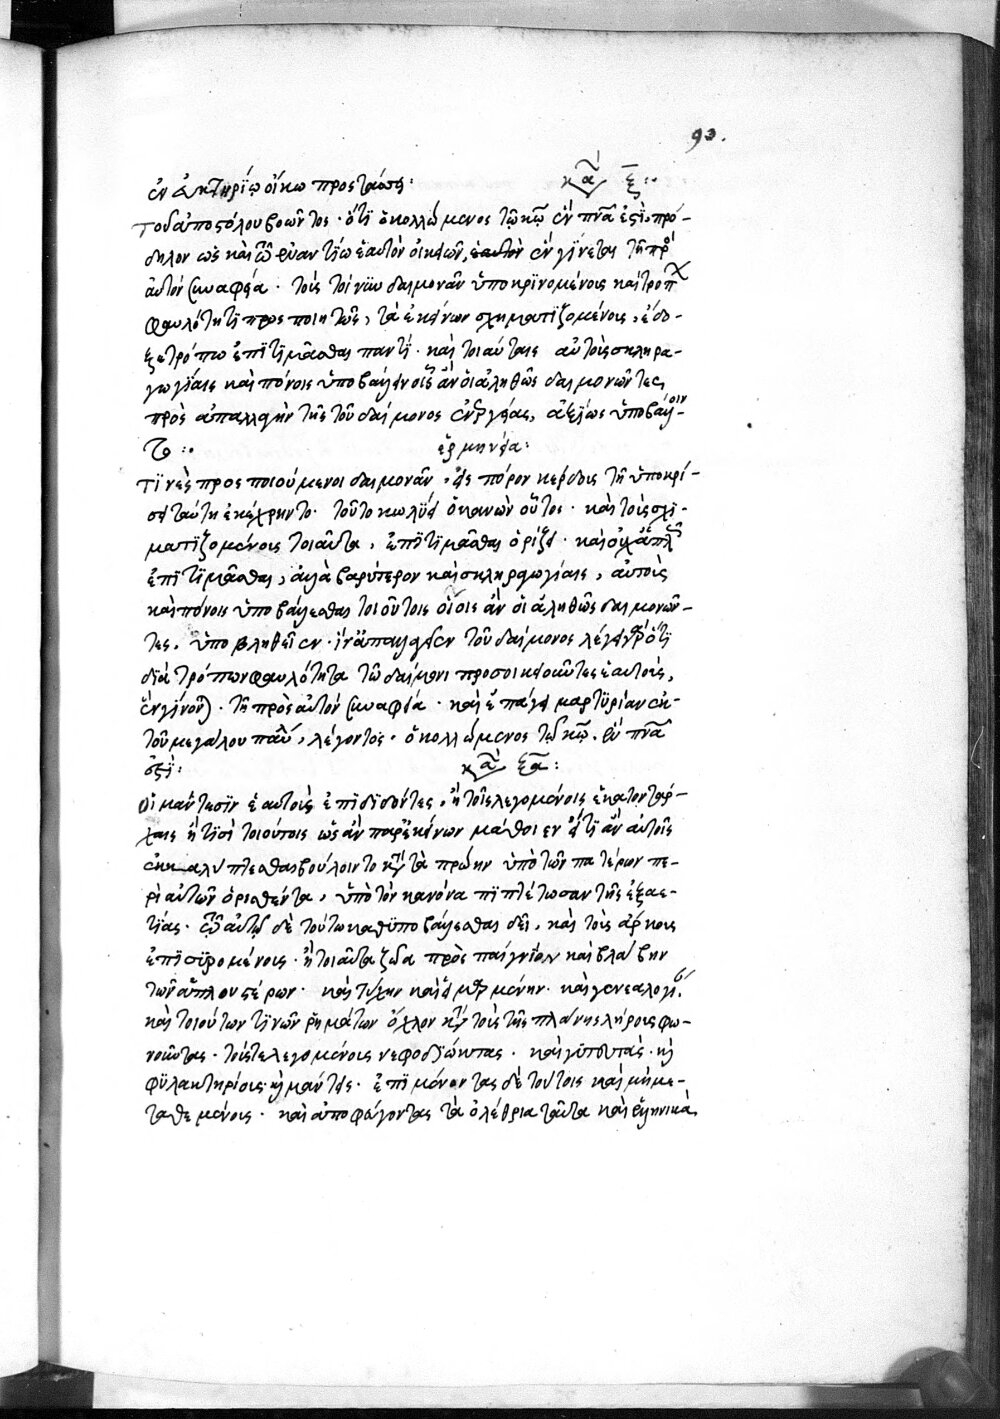 93.
ἐν εὐκτηρίῳ οἴκω προστάσσει: κα(νὼν) ξ̅:
τοῦ ἀποστόλου βοῶντος· ὅτι ὁ κολλώμενος τῷ κω̅ ἓν πνα̅ ἐστὶ, πρό-
δηλον ὡς καὶ ὁ τῶ ἐναντίω ἑαυτὸν οἰκειῶν, ἓν γίνεται τῆ πρὸ
αὐτὸν συναφεία· τοὺς τοίνυν δαιμονᾶν ὑποκρινομένους καὶ τρόπ
φαυλότητι προσποιητῶς, τὰ ἐκείνων σχηματιζομένους, ἔδο-
ξε τρόπω ἐπιτιμᾶσθαι παντί· καὶ τοιαύταις αὐτοὺς σκληρα-
γωγίαις καὶ πόνοις ὑποβάλλειν οἷς ἂν οἱ ἀληθῶς δαιμονῶντες,
πρὸς ἀπαλλαγὴν τῆς τοῦ δαίμονος ἐνεργείας, ἀξίως ὑποβάλλοιν-
το:· ἑρμηνεία:
τινὲς προσποιούμενοι δαιμονᾶν, εἰς πόρον κέρδους τῆ ὑποκρί-
σει ταύτη ἐκέχρηντο· τοῦτο κωλύει ὁ κανὼν οὗτος· καὶ τοὺς σχη-
ματιζομένους τοιαῦτα, ἐπιτιμᾶσθαι ὁρίζει· καὶ οὐχ ἁπλῶς
ἐπιτιμᾶσθαι, ἀλλὰ βαρύτερον καὶ σκληραγωγίαις, αὐτοὺς
καὶ πόνοις ὑποβάλλεσθαι τοιούτοις οἵοις ἂν οἱ ἀληθῶς δαιμονῶν-
τες, ὑποβληθεῖεν· ἵν' ἀπαλλαγεῖεν τοῦ δαίμονος λέγει γὰρ ὅτι
διὰ τρόπων φαυλότητα τῶ δαίμονι προσοικειοῦντες ἑαυτοὺς,
ἓν γίνον(ται)· τῆ πρὸς αὐτὸν συναφεία· καὶ ἐπάγει μαρτυρίαν ἐκ
τοῦ μεγάλου παύ, λέγοντος· ὁ κολλώμενος τῷ κω̅, ἓν πνα̅
ἐστί: κα(νὼν) ξα̅:
οἱ μάντεσιν ἑαυτοὺς ἐπιδιδόντες, ἢ τοῖς λεγομένοις ἑκατοντάρ-
χαις ἤ τισι τοιούτοις ὡς ἂν παρ' ἐκείνων μάθοιεν ὅ,τι ἂν αὐτοῖς
ἐκκαλύπτεσθαι βούλοιντο κατὰ τὰ πρώην ὑπὸ τῶν πατέρων πε-
ρὶ αὐτῶν ὁρισθέντα, ὑπὸ τὸν κανόνα πιπτέτωσαν τῆς ἑξαε-
τίας· τῶ αὐτῷ δὲ τούτω καθυποβάλλεσθαι δεῖ, καὶ τοὺς ἄρκους
ἐπισυρομένους· ἢ τοιαῦτα ζῶα πρὸς παίγνιον καὶ βλάβην
τῶν ἁπλουστέρων· καὶ τύχην καὶ εἱμαρμένην· καὶ γενεαλογί
καὶ τοιούτων τινῶν ῥημάτων ὄχλον κατὰ τοὺς τῆς πλάνης λήρους φω-
νοῦντας· τούς τε λεγομένους νεφοδιώκτας· καὶ γοητευτὰς· κὶ
φυλακτηρίους· κὶ μάντεις· ἐπιμένοντας δὲ τούτοις καὶ μὴ με-
ταθεμένους· καὶ ἀποφεύγοντας τὰ ὀλέθρια ταῦτα καὶ ἑλληνικὰ